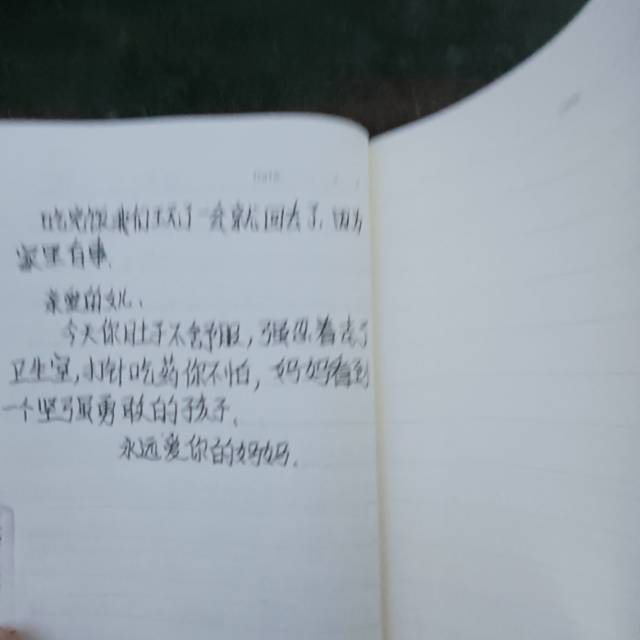 吃完饭我们玩了一会就回去了,因为
家里有事。
亲爱的女儿、
今天你肚子不舒服,强忍着去了
卫生室,小针吃药你不怕,妈妈看到
一个坚强勇敢的孩子。
永远爱你的妈妈。